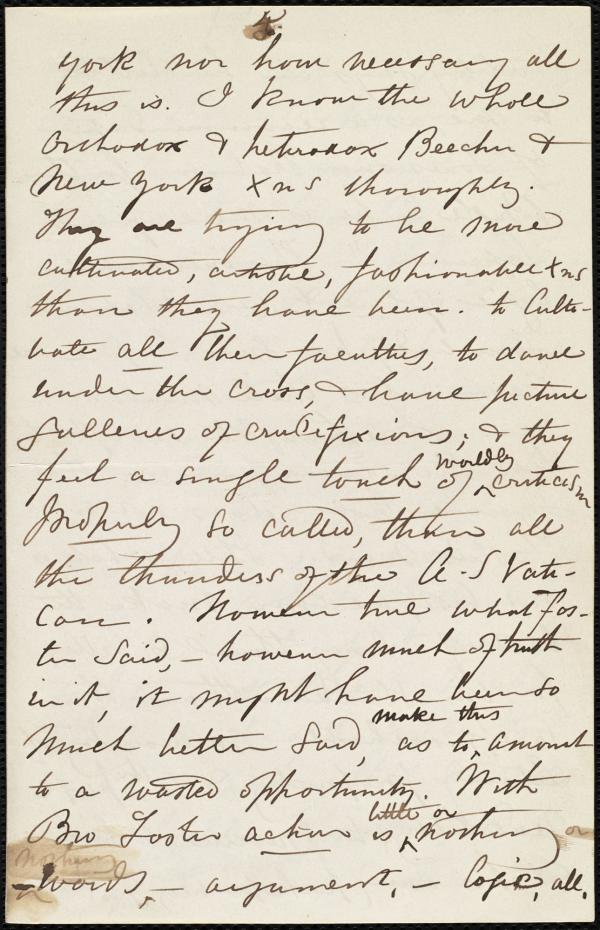 york nor how necessary all
this is. I know the whole
Orthodox & hetrodox Beecher &
New York Xns thoroughly.
They are trying to be more
cultivated, artistic, fashionable Xns
than they have been. to Culti-
vate all their faculties, to dance
under the cross, & have picture
galleries of crucifixions; & they
feel a single touch of worldly criticism
properly so called, than all
the thunders of the A-S Vati-
can. However true what Fos-
ter said, – however much of truth
in it, it might have been so
much better said, as to make this amount
to a wasted opportunity. With
Bro Foster action is little or nothing or
nothing
– words, – argument, – logic, all.